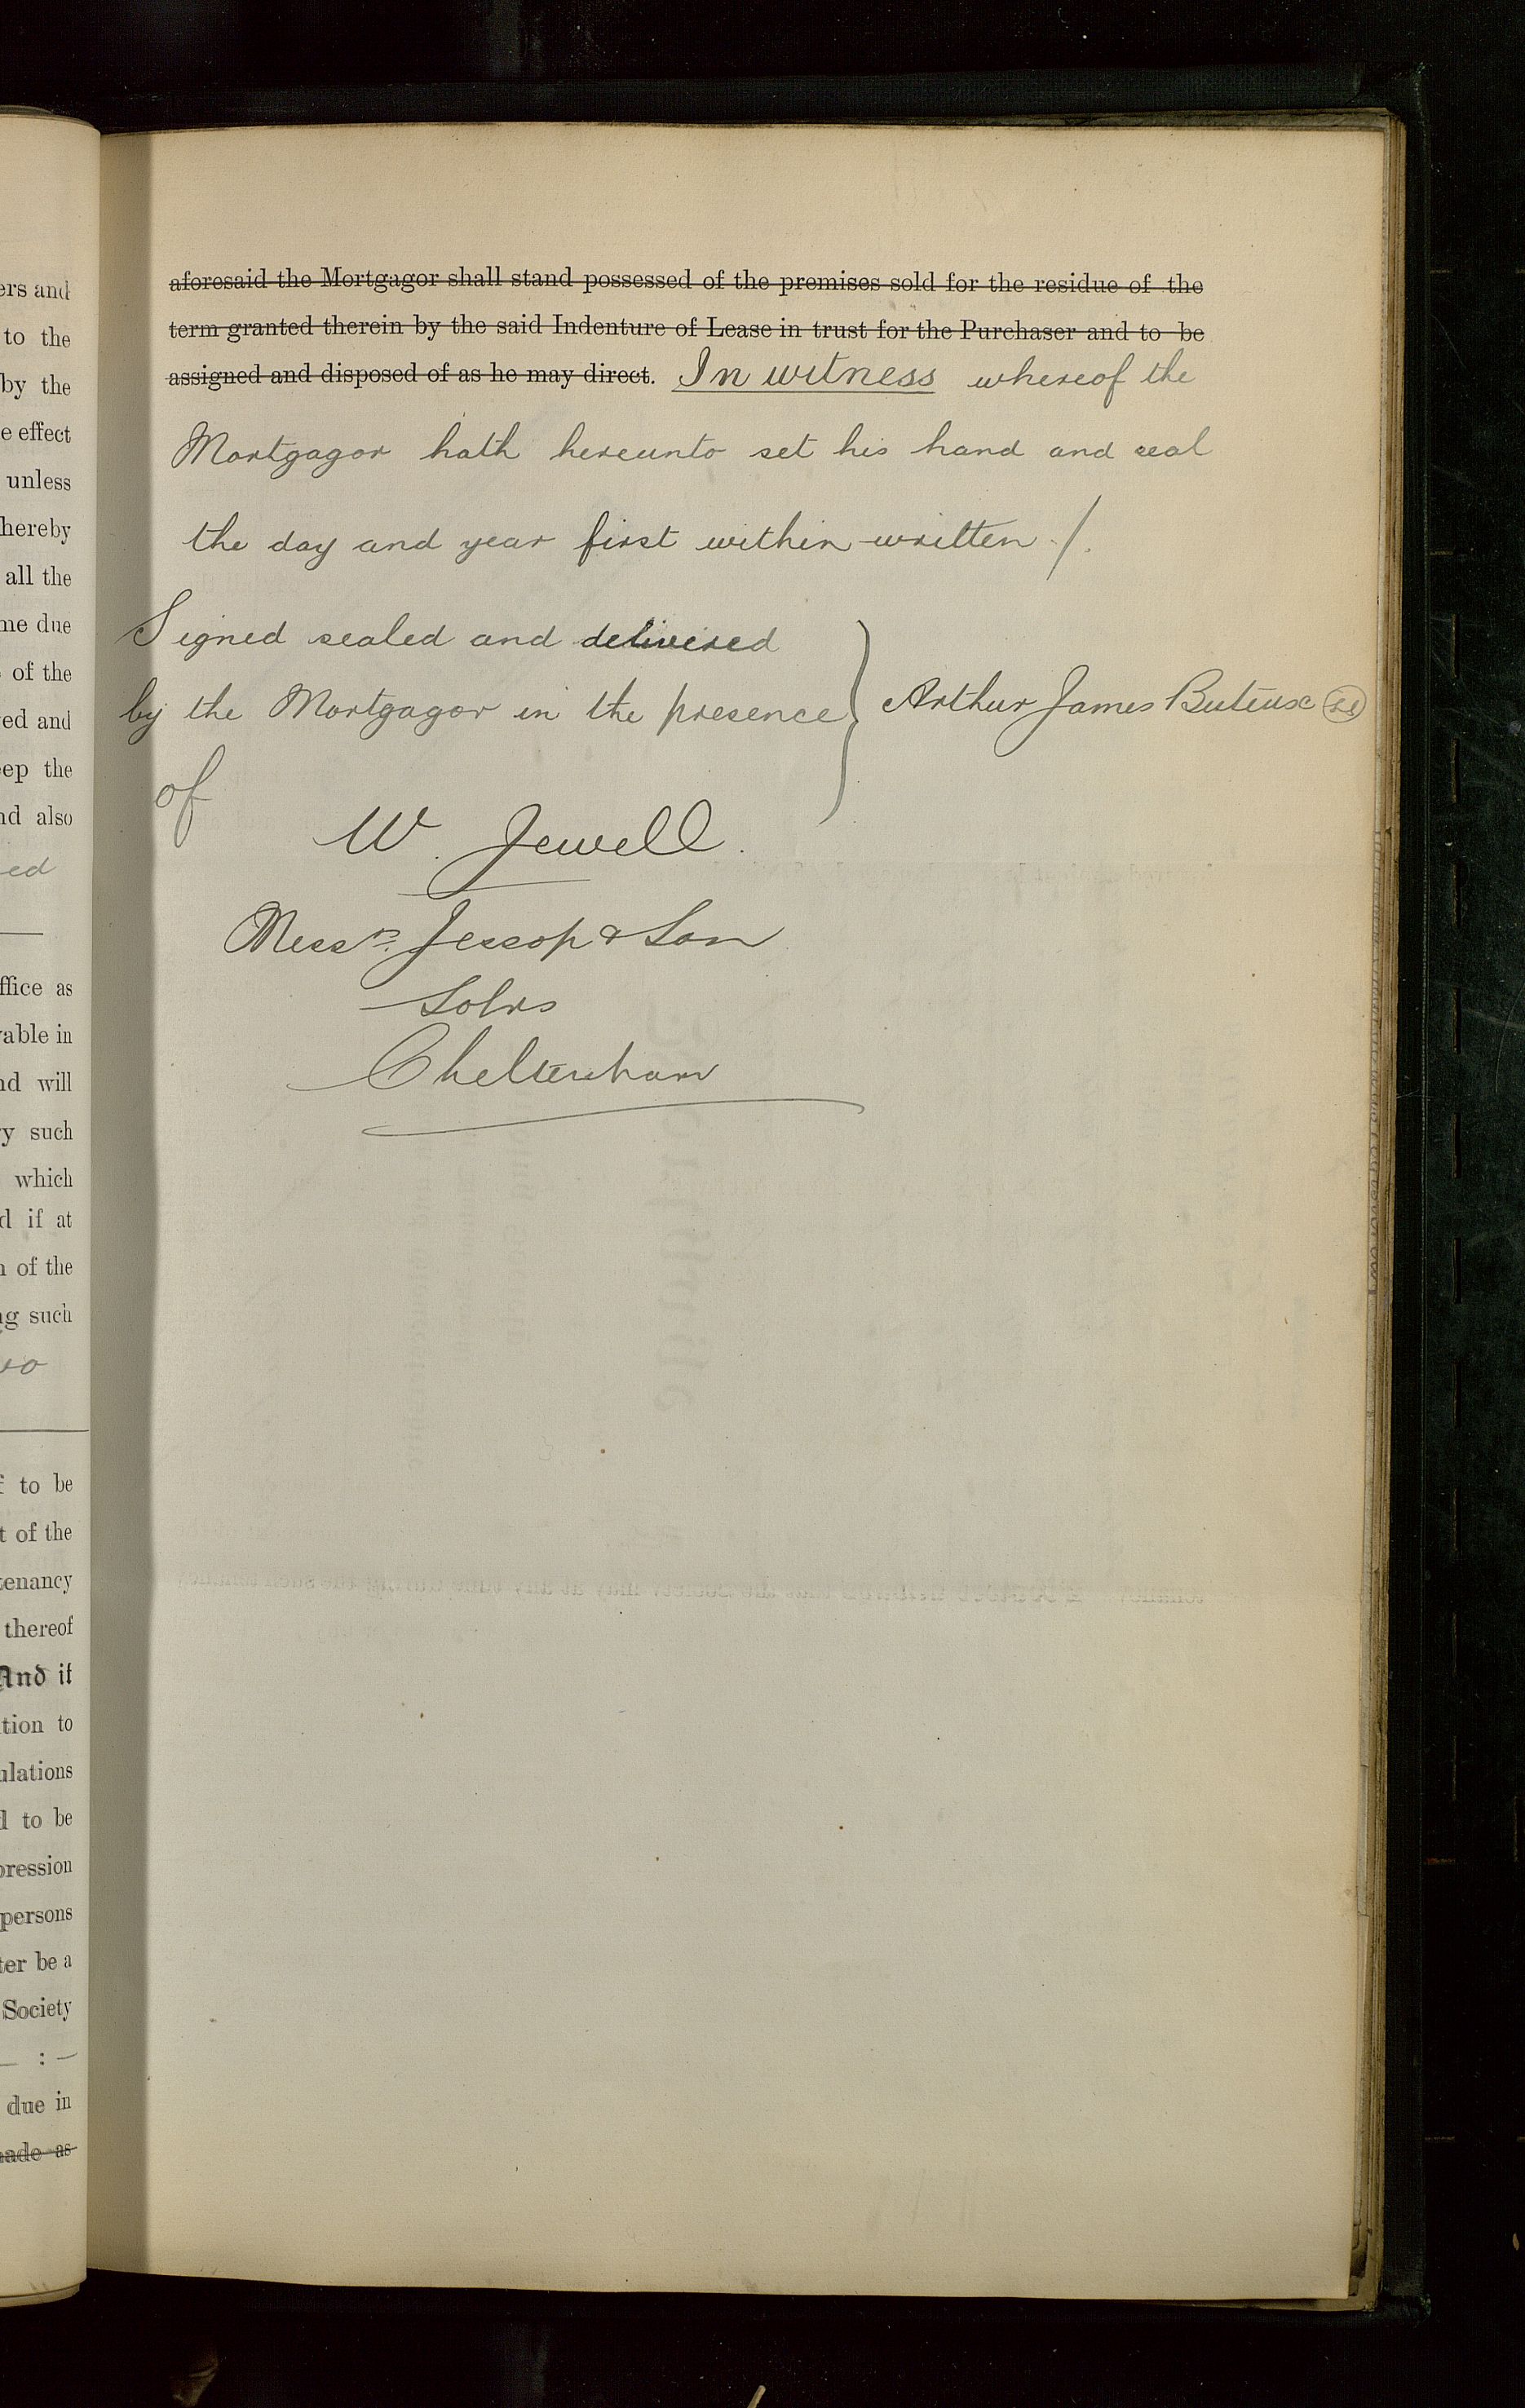 ers and
to the
by the
e effect
unless
hereby
all the
me due
of the
ed and
eep the
nd also
ed
ffice as
able in
nd will
y such
which
d if at
of the
ng such
to be
t of the
tenancy
thereof
And if
tion to
ulations
d to be
pression
persons
ter be a
Society
due in
made as
aforesaid the Mortgagor shall stand possessed of the premises sold for the residue of the
term granted therein by the said Indenture of Lease in trust for the Purchaser and to be
assigned and disposed of as he may direct. In witness whereof the
Mortgagor hath hereunto set his hand and seal
the day and year first within-written /.
Signed sealed and delivered
by the Mortgagor in the presence
of
Arthur James
W. Jewell.
Messrs. Jessop & Son
Solrs
Cheltenham